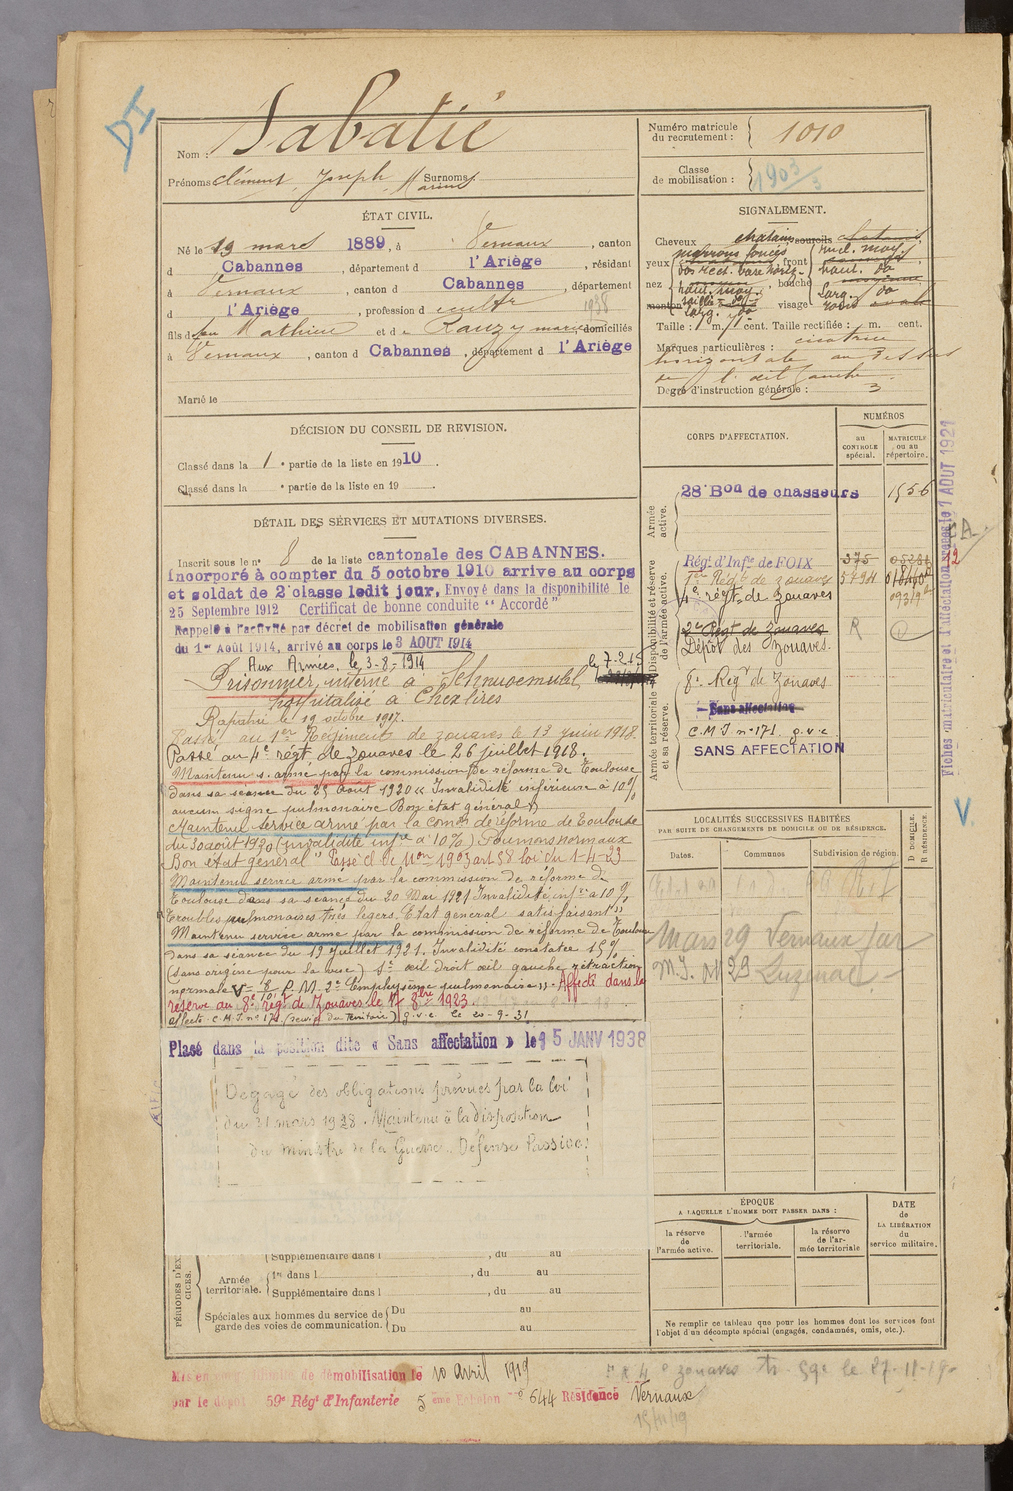 DI
Nom : Sabatié
Prénoms Clément, Joseph, Marius Surnoms
Numéro matricule du recrutement : 1010
Classe de mobilisation : 1903/3
ÉTAT CIVIL.
Né le 19 mars 1889, à Vernaux, canton
d Cabannes, département d l'Ariège, résidant
à Vernaux, canton d Cabannes, département
d l'Ariège, profession d cultr
1938
fils de feu Mathieu et de Rauzy marie domiciliés
à Vernaux, canton d Cabannes, département d l'Ariège
Marié le
SIGNALEMENT.
Cheveux chatains sourcils
yeux marrons foncés, front incl. moy.
dos rect. base horiz. haut. do
nez haut. moy., bouche
saillie do Larg. do
menton larg. do visage
Taille : 1 m. cent. Taille rectifiée : m. cent.
Marques particulières : cicatrice
horizontale au dessus
de l'œil gauche
Degré d'instruction générale : 3
DÉCISION DU CONSEIL DE REVISION.
Classé dans la 1e partie de la liste en 1910.
Classé dans la e partie de la liste en 19 .
DÉTAIL DES SERVICES ET MUTATIONS DIVERSES.
Inscrit sous le n° 8 de la liste cantonale des CABANNES.
Incorporé à compter du 5 octobre 1910 arrive au corps
et soldat de 2e classe ledit jour, Envoyé dans la disponibilité le
25 Septembre 1912 Certificat de bonne conduite "Accordé"
Rappelé à l'activité par décret de mobilisation générale
du 1er Août 1914, arrivé au corps le 3 AOUT 1914
Aux Armées, le 3-8-1914
Prisonnier, interné à le 7-2-15
hospitalisé à
Rapatrié le 19 octobre 1917.
Passé au 1er Régiment de zouaves le 13 juin 1918.
Passé au 4e régt de zouaves le 26 juillet 1918.
Maintenu s. armé par la commission de réforme de Toulouse
dans sa séance du 25 août 1920 « Invalidité inférieure à 10%
aucun signe pulmonaire Bon état général »
Maintenu service armé par la comon de réforme de Toulouse
du 30 août 1920 (invalidité infre à 10%) Poumons normaux
Bon état général" Passé cl. de mon 1903 art 58 loi du 1-4-23
Maintenu service armé par la commission de réforme de
Toulouse dans sa séance du 20 Mai 1921 Invalidité infre à 10%
Troubles pulmonaires très légers. Etat général satisfaisant"
Maintenu service armé par la commission de réforme de Toulouse
dans sa séance du 19 Juillet 1921. Invalidité constatée 15%
(sans origine pour la vue) 1° œil droit œil gauche réfraction
normale V = 8/10 P.M. 2° Emphysème pulmonaire ». Affecté dans la
réserve au 8e régt de Zouaves le 8bre 1923.
affecté C.M.I. n° 171 (service du territoire) g.v.c le 20-9-31
Placé dans la position dite « Sans affectation » le 15 JANV 1938
Dégagé des obligations prévues par la loi
du 31 mars 1928. Maintenu à la disposition
du ministre de la Guerre. Défense Passive.
CORPS D'AFFECTATION.
NUMÉROS
au CONTROLE spécial.
MATRICULE ou au répertoire.
Armée active.
28e Bon de chasseurs 1556
Disponibilité et réserve de l'armée active.
Régt d'Infie de FOIX 375
1er Régt de zouaves 5794
4e régt de Zouaves
2e Régt de Zouaves R
Dépôt des Zouaves.
Armée territoriale et sa réserve.
8e Régt de Zouaves
Sans affectation
C.M.I. n° 171 g.v.c
SANS AFFECTATION
Fiches matriculaire et d'affectation AOUT 1921
12
V
LOCALITÉS SUCCESSIVES HABITÉES
PAR SUITE DE CHANGEMENTS DE DOMICILE OU DE RÉSIDENCE.
Dates. Communes Subdivision de région.
D DOMICILE. R RÉSIDENCE.
Mars 29 Vernaux
M.I. 23 Luzenac
ÉPOQUE
A LAQUELLE L'HOMME DOIT PASSER DANS :
la réserve de l'armée active.
l'armée territoriale.
la réserve de l'armée territoriale
DATE de LA LIBÉRATION du service militaire.
PÉRIODES D'EXERCICES.
Supplémentaire dans l , du au
Armée territoriale. 1re dans l , du au
Supplémentaire dans l , du au
Spéciales aux hommes du service de garde des voies de communication. Du au
Du au
Ne remplir ce tableau que pour les hommes dont les services font
l'objet d'un décompte spécial (engagés, condamnés, omis, etc.).
Mis en congé illimité de démobilisation le 10 avril 1919
par le dépôt 59e Régt d'Infanterie 5ème Echelon n° 644 Résidence Vernaux
4e zouaves tr. 59e le 27-11-19
15/11/19